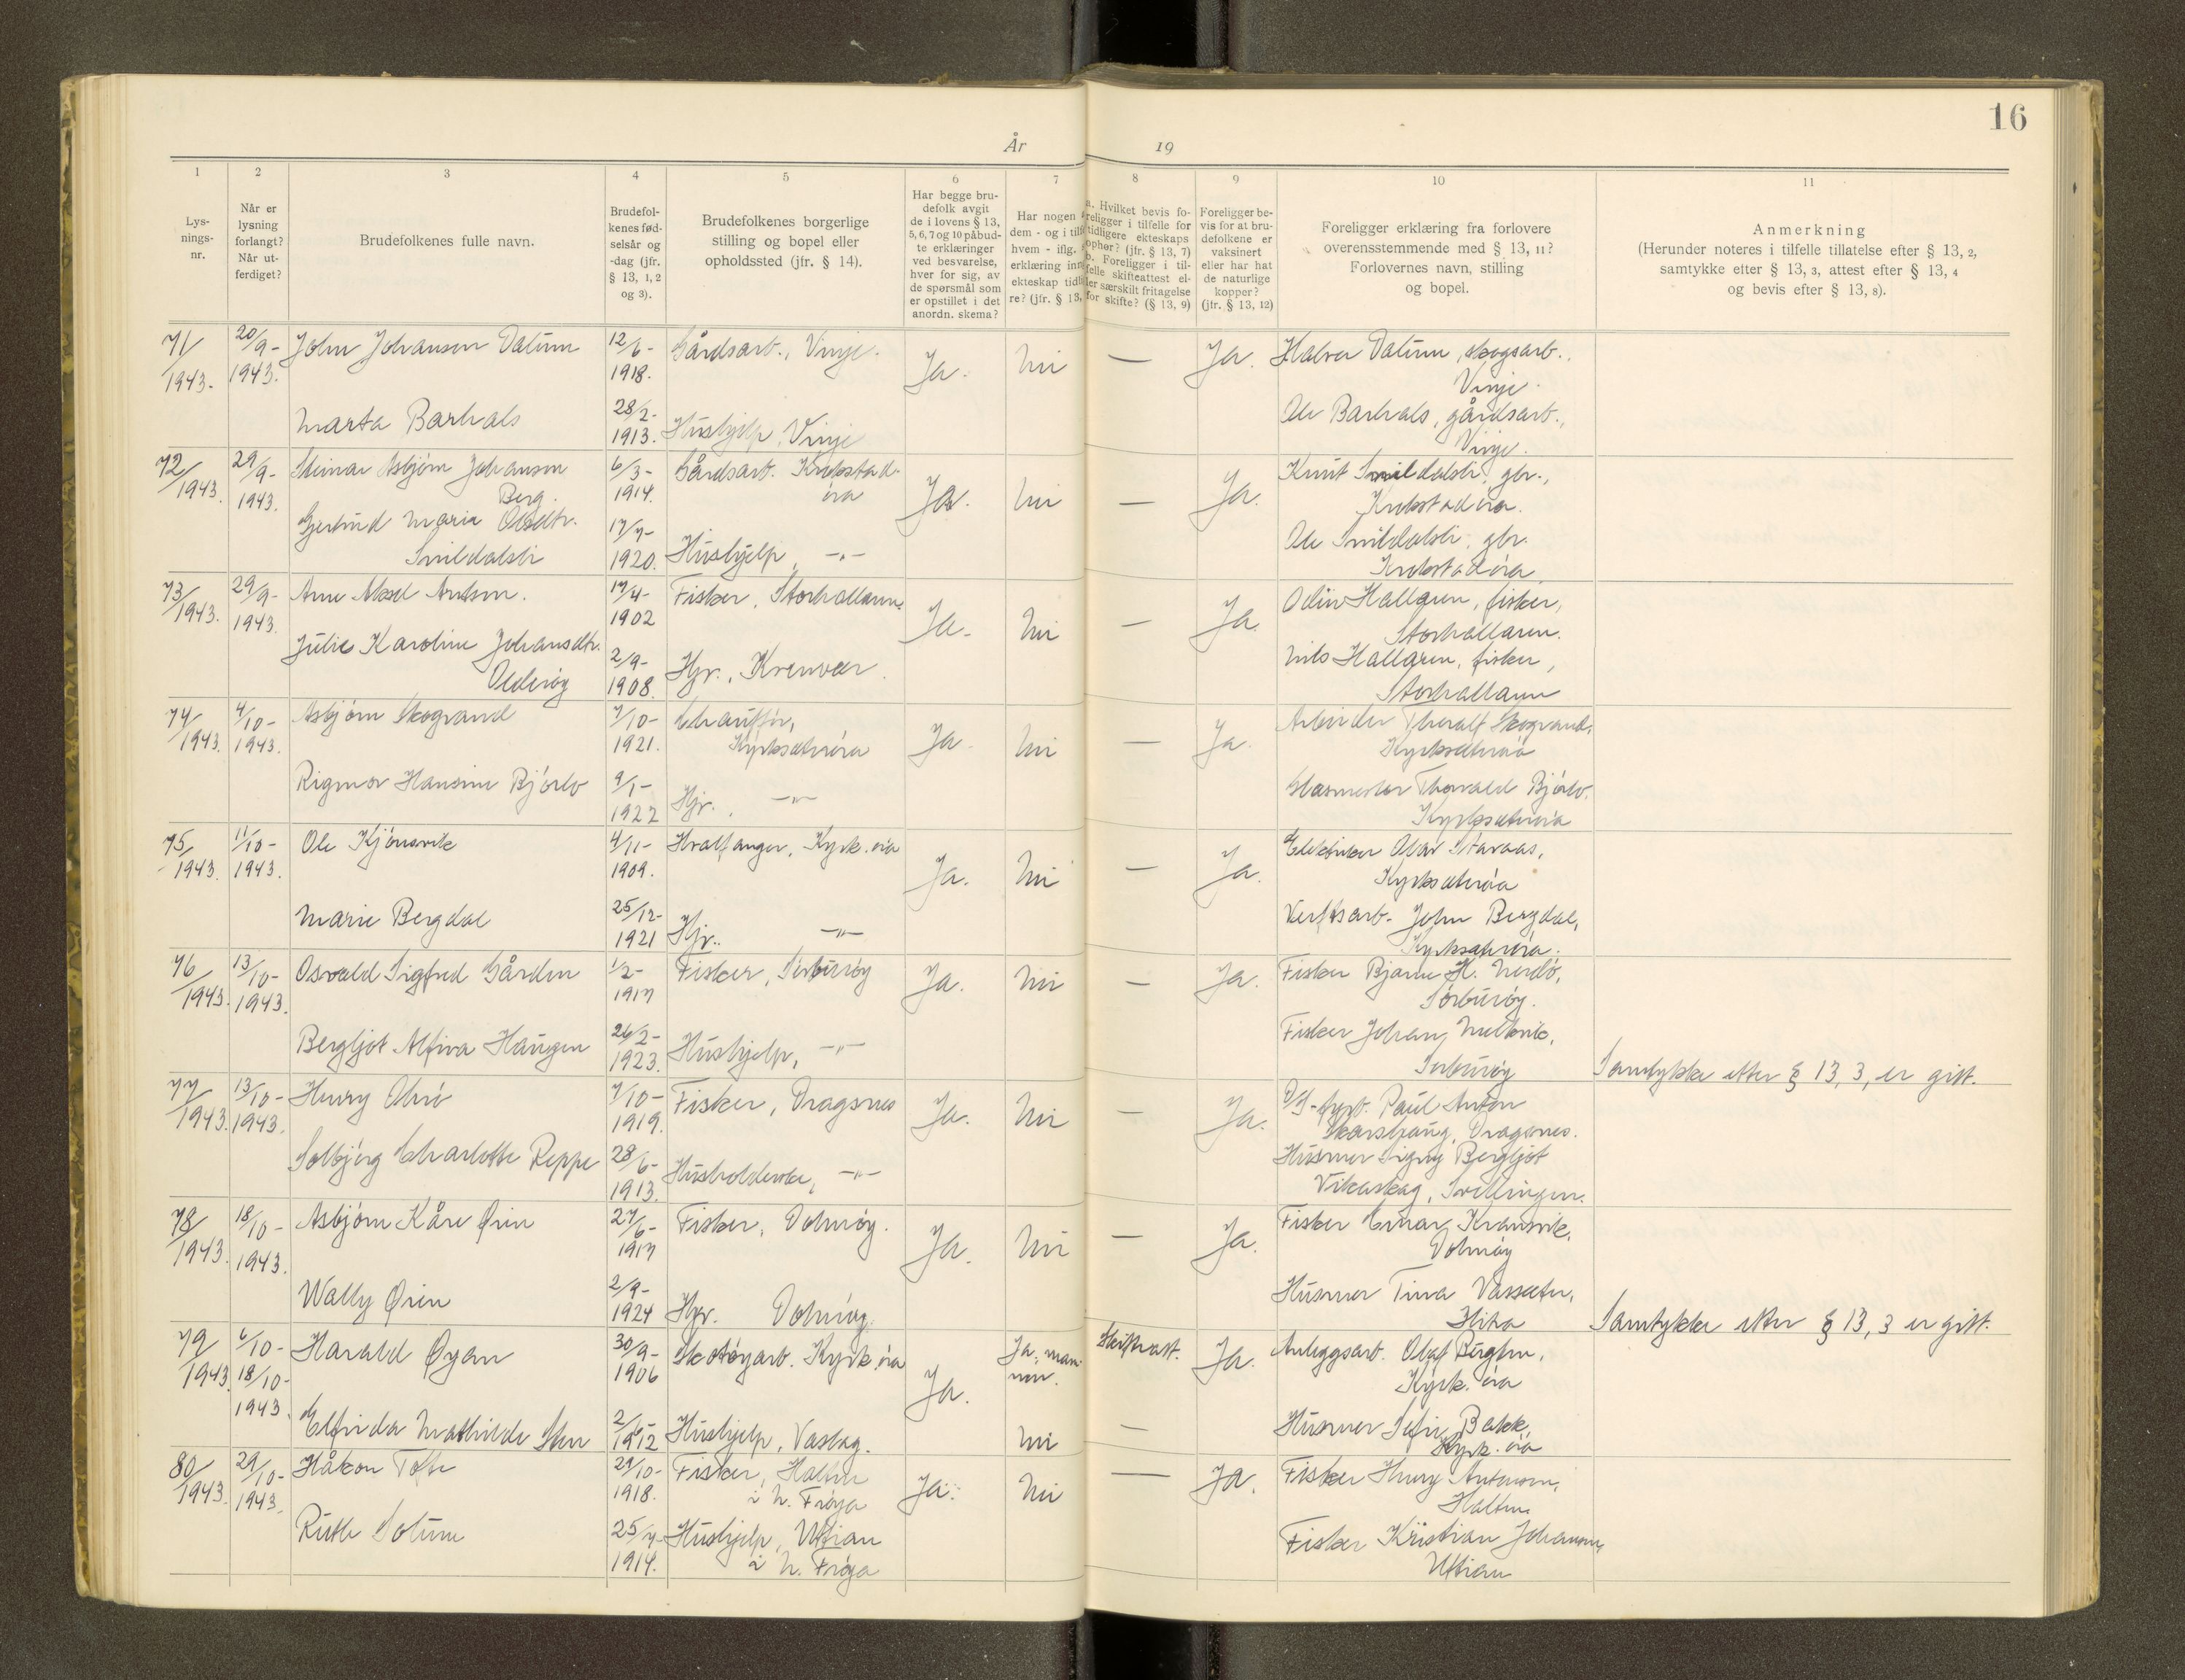 16
År 19
1 2 3 4 5 6 7 8 9 10 11
Lysnings-nr.
Når er lysning forlangt? Når utferdiget?
Brudefolkenes fulle navn.
Brudefolkenes fødselsår og -dag (jfr. § 13, 1, 2 og 3).
Brudefolkenes borgerlige stilling og bopel eller opholdssted (jfr. § 14).
Har begge brudefolk avgit de i lovens § 13, 5, 6, 7 og 10 påbudte erklæringer ved besvarelse, hver for sig, av de spørsmål som er opstillet i det anordn. skema?
Har nogen dem - og i tilf hvem - iflg. erklæring inn ekteskap tidl re? (jfr. § 13,
a. Hvilket bevis foreligger i tilfelle for tidligere ekteskaps ophør? (jfr. § 13, 7) b. Foreligger i tilfelle skifteattest eller særskilt fritagelse for skifte? (§ 13, 9)
Foreligger bevis for at brudefolkene er vaksinert eller har hat de naturlige kopper? (jfr. § 13, 12)
Foreligger erklæring fra forlovere overensstemmende med § 13, 11? Forlovernes navn, stilling og bopel.
Anmerkning (Herunder noteres i tilfelle tillatelse efter § 13, 2, samtykke efter § 13, 3, attest efter § 13, 4 og bevis efter § 13, 8).
71/1943. 20/9-1943. John Johansen Dalum 12/6-1918. Gårdsarb., Vinje. Ja. Nei — Ja. Halvor Dalum, skogsarb., Vinje.
Marta Barhals 28/2-1913. Hushjelp, Vinje Ole Barhals, gårdsarb., Vinje.
72/1943. 29/9-1943. Steinar Asbjørn Johansen Berg. 6/3-1914. Gårdsarb. Krokstadøra Ja. Nei — Ja. Knut Snildalsli, gbr., Krokstadøra.
Gjertrud Maria Olsdtr. Snildalsli 17/7-1920. Hushjelp, —"— Ole Snildalsli, gbr. Krokstadøra.
73/1943. 29/9-1943. Arne Aksel Antsen. 17/4-1902 Fisker, Storhallaren. Ja. Nei — Ja. Odin Hallaren, fisker, Storhallaren.
Julie Karoline Johansdtr. Olderøy 2/9-1908. Hjv., Kvenvær. Nils Hallaren, fisker, Storhallaren
74/1943. 4/10-1943. Asbjørn Skogrand 7/10-1921. Chauffør, Kyrksæterøra Ja. Nei — Ja. Arbeider Thoralf Skogrand, Kyrksæterøra
Rigmor Hansine Bjørlo 9/1-1922 Hjv. —"— Glasmester Thorvald Bjørlo, Kyrksæterøra
75/1943. 11/10-1943. Ole Kjønsvik 4/11-1909. Hvalfanger, Kyrk.øra Ja. Nei — Ja. Elektriker Olav Stavaas, Kyrksæterøra
Marie Bergdal 25/12-1921 Hjv. —"— Verftsarb. John Bergdal, Kyrksæterøra.
76/1943. 13/10-1943. Osvald Sigfred Gården 1/2-1917 Fisker, Sørburøy Ja. Nei — Ja. Fisker Bjarne H. Nerdø, Sørburøy.
Bergljot Alfiva Haugen 26/2-1923. Hushjelp, —"— Fisker Johan Sørburøy Samtykke etter § 13, 3, er gitt.
77/1943. 13/10-1943. Henry 7/10-1919. Fisker, Dragsnes Ja. Nei — Ja. Paul Anton Dragsnes.
Solbjørg Charlotte Reppe 28/6-1913. Husholderske, —"— Husmor Signy Bergljot Vikaskag, Svellingen.
78/1943. 18/10-1943. Asbjørn Kåre Øien 27/6-1917 Fisker, Dolmøy. Ja. Nei — Ja. Fisker Einar Kransvik, Dolmøy
Wally Øien 2/9-1924 Hjv. Dolmøy. Husmor Tina Vassæter, Hitra Samtykke etter § 13, 3 er gitt.
79/1943. 6/10- 18/10-1943. Harald Øyen 30/9-1906 Skotøyarb. Kyrk.øra Ja. Ja, mannen. Skifteatt. Ja. Anleggsarb. Olaf Kyrk.øra
Elfrida Mathilde Sten 2/6-1912 Hushjelp, Vaslag. Nei — Husmor Sefie Bakk, Kyrk.øra
80/1943. 29/10-1943. Håkon Tofte 29/10-1918. Fisker, Halten i N. Frøya Ja. Nei — Ja. Fisker Henry Antonsen, Halten.
Ruth Solum 25/7-1914. Hushjelp, Uttian i N. Frøya Fisker Kristian Johansen, Uttian